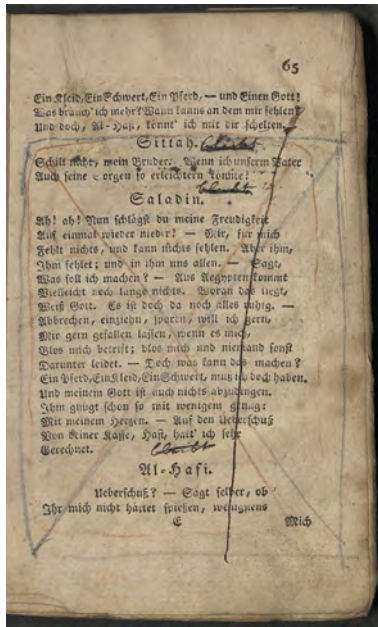 65
Ein Kleid, Ein Schwert, Ein Pferd, — und Einen Gott!
Was brauch' ich mehr? Wann kanns an dem mir fehlen?
Und doch, Al-Hafi, könnt' ich mit dir schelten.
Sittah.
Schilt nicht, mein Bruder. Wenn ich unserm Vater
Auch seine Sorgen so erleichtern könnte!
Saladin.
Ah! ah! Nun schlägst du meine Freudigkeit
Auf einmal wieder nieder! — Mir, für mich
Fehlt nichts, und kann nichts fehlen. Aber ihm,
Ihm fehlet; und in ihm uns allen. — Sagt,
Was soll ich machen? — Aus Aegypten kommt
Vielleicht noch lange nichts. Woran das liegt,
Weiß Gott. Es ist doch da noch alles ruhig. —
Abbrechen, einziehn, sparen, will ich gern,
Mir gern gefallen lassen, wenn es mich,
Blos mich betrift; blos mich und niemand sonst
Darunter leidet. — Doch was kann das machen?
Ein Pferd, Ein Kleid, Ein Schwert, muß ich doch haben.
Und meinem Gott ist auch nichts abzudingen.
Ihm gnügt schon so mit wenigem genug:
Mit meinem Herzen. — Auf den Ueberschuß
Von deiner Kasse, Hafi, hatt' ich sehr
Gerechnet.
bleibt
Al-Hafi.
Ueberschuß? — Sagt selber, ob
Ihr mich nicht hättet spießen, wenigstens
E Mich